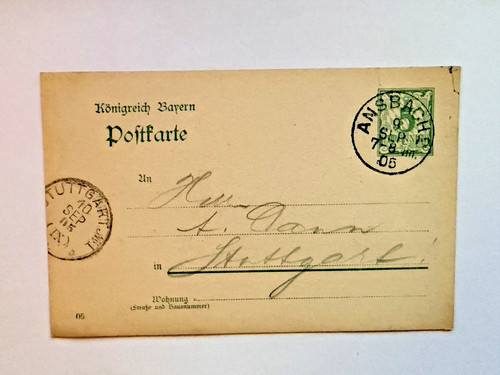 Königreich Bayern
Postkarte
ANSBACH 2
9
SEP.
7-8 Vm.
05
5
STUTTGART
10
SEP
05
An
Herrn
A. Dann
in Stuttgart!
Wohnung
(Straße und Hausnummer)
05